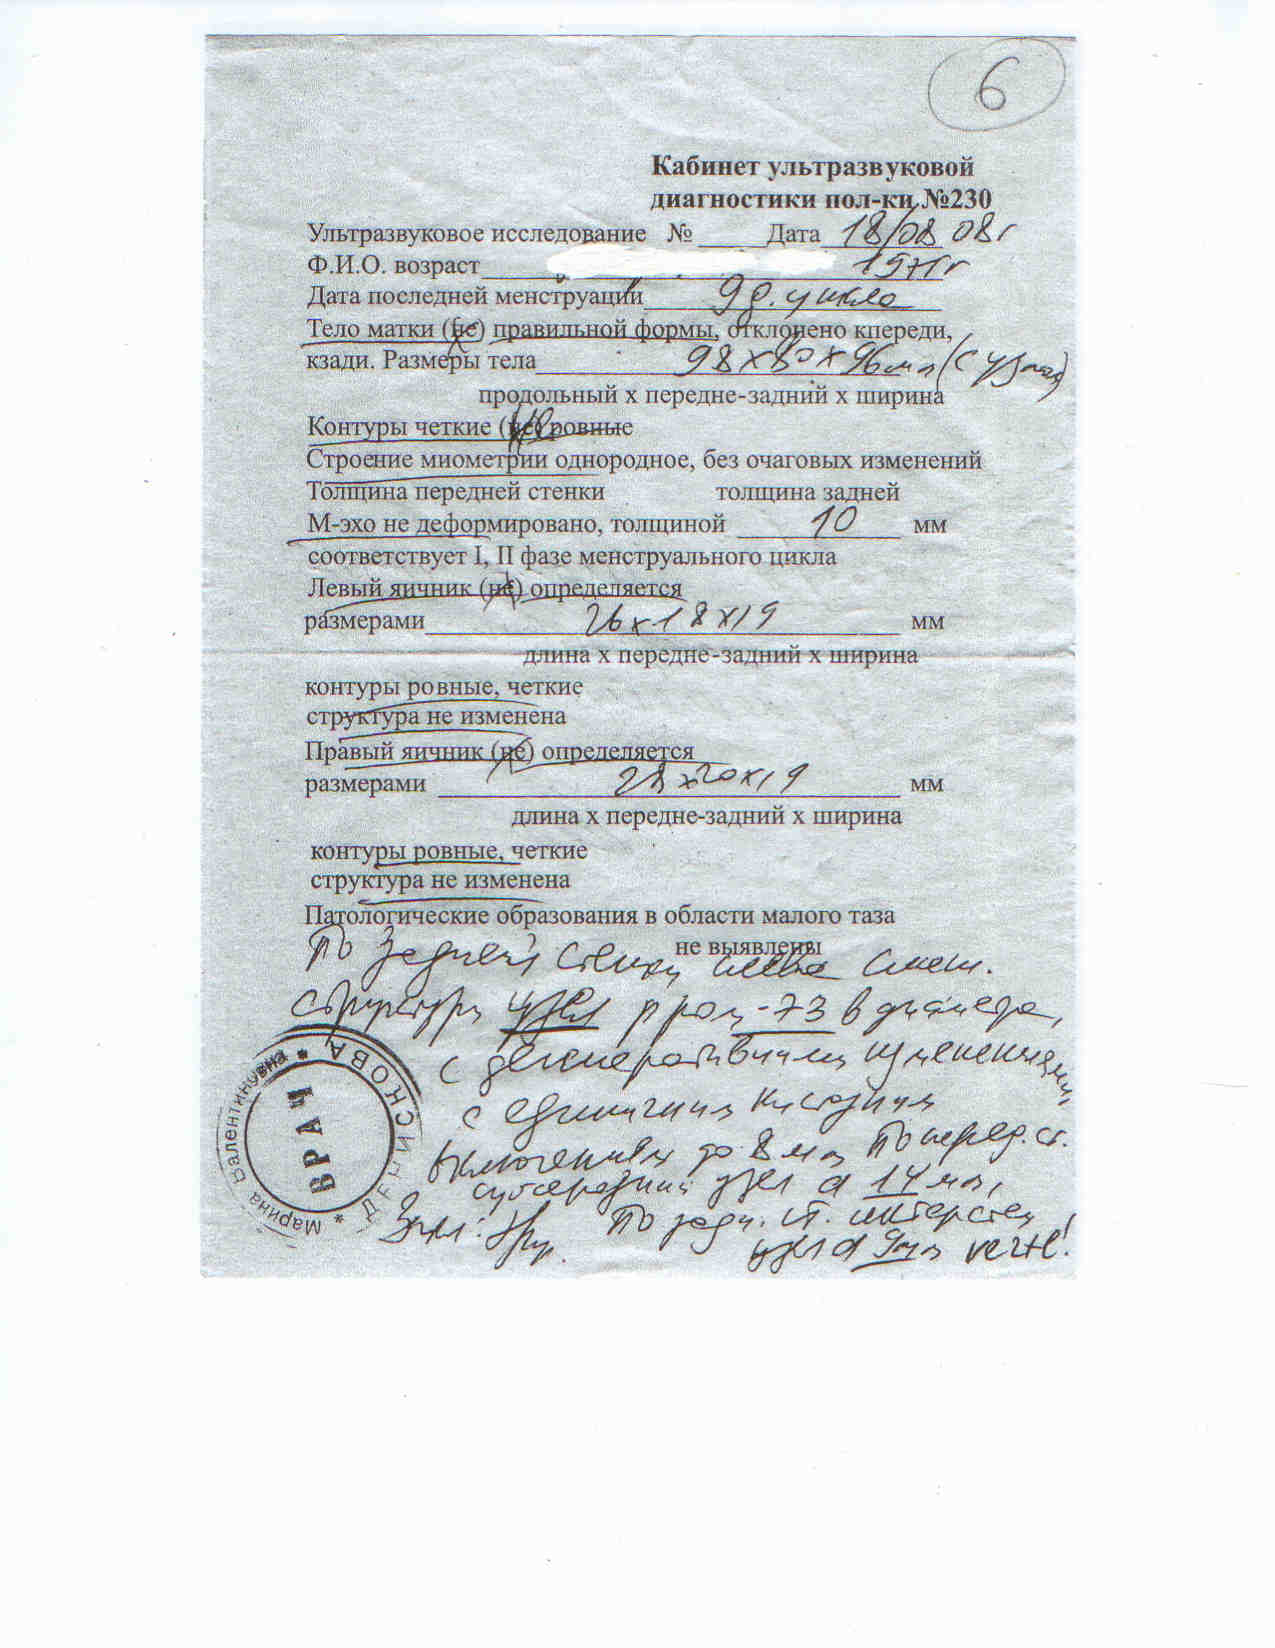 6
Кабинет ультразвуковой
диагностики пол-ки №230
Ультразвуковое исследование № Дата 18/08 08г
Ф.И.О. возраст 1971г
Дата последней менструации 9 д. цикла
Тело матки (не) правильной формы, отклонено кпереди,
кзади. Размеры тела 98х80х96мм (с узлом)
продольный х передне-задний х ширина
Контуры четкие (не) ровные
Строение миометрии однородное, без очаговых изменений
Толщина передней стенки толщина задней
М-эхо не деформировано, толщиной 10 мм
соответствует I, II фазе менструального цикла
Левый яичник (не) определяется
размерами 26х18х19 мм
длина х передне-задний х ширина
контуры ровные, четкие
структура не изменена
Правый яичник (не) определяется
размерами 28х20х19 мм
длина х передне-задний х ширина
контуры ровные, четкие
структура не изменена
Патологические образования в области малого таза
не выявлены
По задней стенке слева смеш.
структуры узел р-ром -73 в диаметре,
с дегенеративными изменениями,
с единичными кистозными
включениями до 8 мм По перед. ст.
субсерозный узел d 14 мм,
По задн. ст. интерстиц
узел d 9мм
ВРАЧ
ДЕНИСКОВА * Марина Валентиновна *